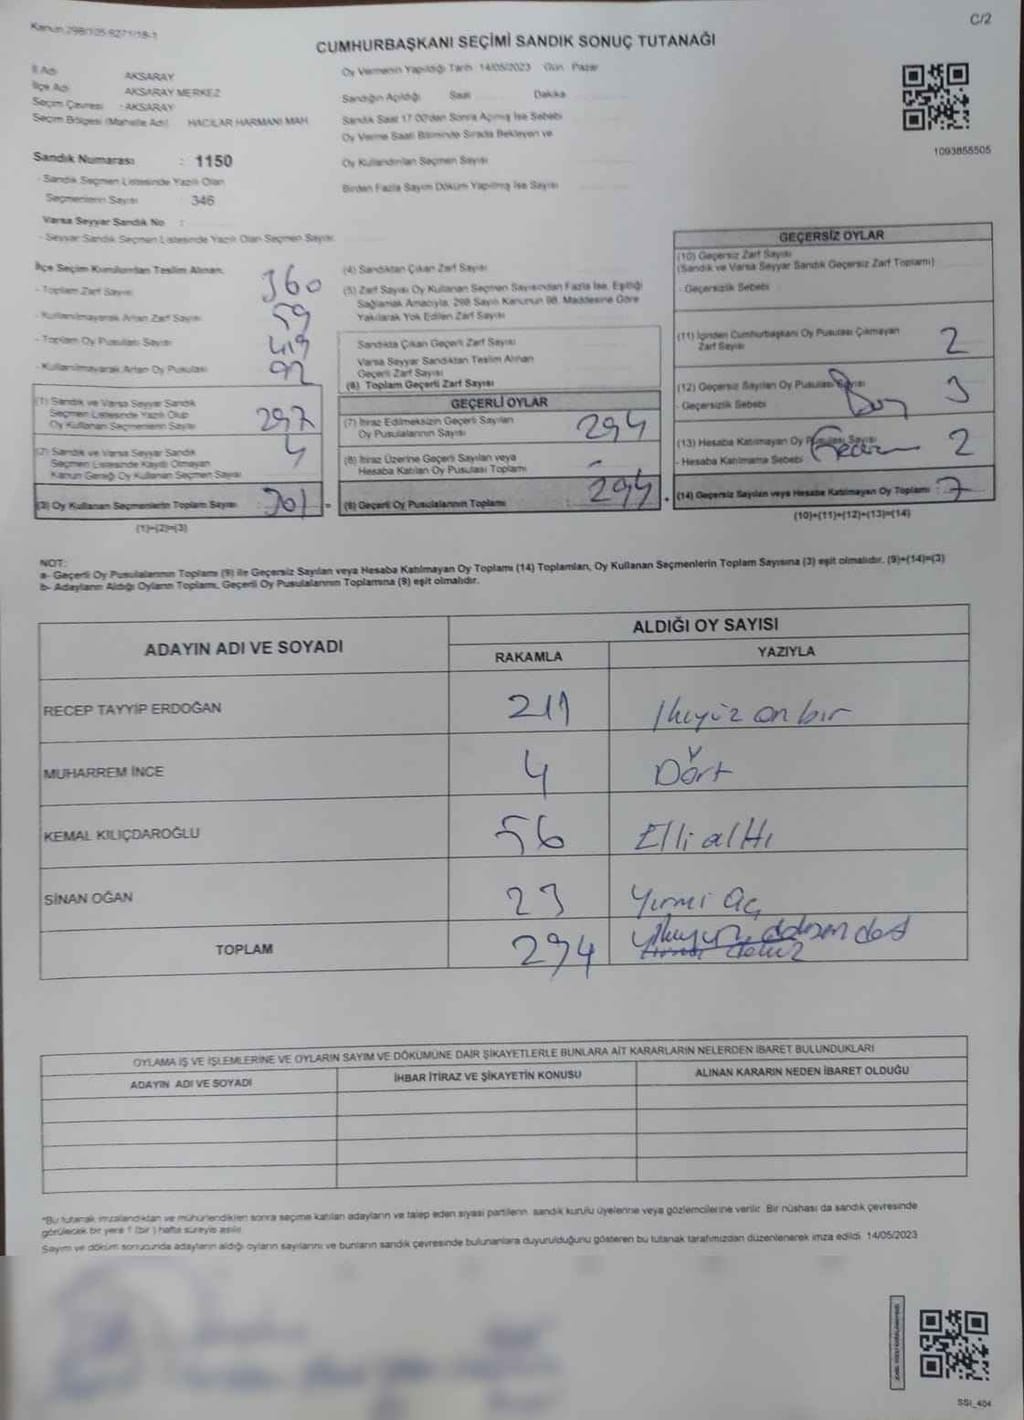 Kanun 298/105-6271/18-1
C/2
CUMHURBAŞKANI SEÇİMİ SANDIK SONUÇ TUTANAĞI
İl Adı AKSARAY
İlçe Adı AKSARAY MERKEZ
Seçim Çevresi : AKSARAY
Seçim Bölgesi (Mahalle Adı) HACILAR HARMANI MAH
Oy Vermenin Yapıldığı Tarih 14/05/2023 Gün Pazar
Sandığın Açıldığı Saat Dakika
Sandık Saat 17.00'dan Sonra Açılmış İse Sebebi
Oy Verme Saati Bitiminde Sırada Bekleyen ve
Oy Kullandırılan Seçmen Sayısı
Birden Fazla Sayım Döküm Yapılmış İse Sayısı
1093855505
Sandık Numarası : 1150
- Sandık Seçmen Listesinde Yazılı Olan
Seçmenlerin Sayısı 346
Varsa Seyyar Sandık No :
- Seyyar Sandık Seçmen Listesinde Yazılı Olan Seçmen Sayısı
İlçe Seçim Kurulundan Teslim Alınan:
- Toplam Zarf Sayısı 360
- Kullanılmayarak Artan Zarf Sayısı 59
- Toplam Oy Pusulası Sayısı 419
- Kullanılmayarak Artan Oy Pusulası 92
(1) Sandık ve Varsa Seyyar Sandık
Seçmen Listesinde Yazılı Olup
Oy Kullanan Seçmenlerin Sayısı 297
(2) Sandık ve Varsa Seyyar Sandık
Seçmen Listesinde Kayıtlı Olmayan
Kanun Gereği Oy Kullanan Seçmen Sayısı 4
(3) Oy Kullanan Seçmenlerin Toplam Sayısı 301 =
(1)+(2)=(3)
(4) Sandıktan Çıkan Zarf Sayısı
(5) Zarf Sayısı Oy Kullanan Seçmen Sayısından Fazla İse, Eşitliği
Sağlamak Amacıyla, 298 Sayılı Kanunun 98. Maddesine Göre
Yakılarak Yok Edilen Zarf Sayısı
Sandıkta Çıkan Geçerli Zarf Sayısı
Varsa Seyyar Sandıktan Teslim Alınan
Geçerli Zarf Sayısı
(6) Toplam Geçerli Zarf Sayısı
GEÇERLİ OYLAR
(7) İtiraz Edilmeksizin Geçerli Sayılan
Oy Pusulalarının Sayısı 294
(8) İtiraz Üzerine Geçerli Sayılan veya
Hesaba Katılan Oy Pusulası Toplamı -
(9) Geçerli Oy Pusulalarının Toplamı 294 +
GEÇERSİZ OYLAR
(10) Geçersiz Zarf Sayısı
(Sandık ve Varsa Seyyar Sandık Geçersiz Zarf Toplamı)
- Geçersizlik Sebebi
(11) İçinden Cumhurbaşkanı Oy Pusulası Çıkmayan
Zarf Sayısı 2
(12) Geçersiz Sayılan Oy Pusulası Sayısı 3
- Geçersizlik Sebebi
(13) Hesaba Katılmayan Oy Pusulası Sayısı 2
- Hesaba Katılmama Sebebi
(14) Geçersiz Sayılan veya Hesaba Katılmayan Oy Toplamı : 7
(10)+(11)+(12)+(13)=(14)
NOT:
a- Geçerli Oy Pusulalarının Toplamı (9) ile Geçersiz Sayılan veya Hesaba Katılmayan Oy Toplamı (14) Toplamları, Oy Kullanan Seçmenlerin Toplam Sayısına (3) eşit olmalıdır. (9)+(14)=(3)
b- Adayların Aldığı Oyların Toplamı, Geçerli Oy Pusulalarının Toplamına (9) eşit olmalıdır.
ADAYIN ADI VE SOYADI
ALDIĞI OY SAYISI
RAKAMLA YAZIYLA
RECEP TAYYİP ERDOĞAN 211 İkiyüz on bir
MUHARREM İNCE 4 Dört
KEMAL KILIÇDAROĞLU 56 Elli altı
SİNAN OĞAN 23 Yirmi üç
TOPLAM 294
OYLAMA İŞ VE İŞLEMLERİNE VE OYLARIN SAYIM VE DÖKÜMÜNE DAİR ŞİKAYETLERLE BUNLARA AİT KARARLARIN NELERDEN İBARET BULUNDUKLARI
ADAYIN ADI VE SOYADI İHBAR İTİRAZ VE ŞİKAYETİN KONUSU ALINAN KARARIN NEDEN İBARET OLDUĞU
*Bu tutanak imzalandıktan ve mühürlendikten sonra seçime katılan adayların ve talep eden siyasi partilerin sandık kurulu üyelerine veya gözlemcilerine verilir. Bir nüshası da sandık çevresinde
görülecek bir yere 1 (bir) hafta süreyle asılır.
Sayım ve döküm sonucunda adayların aldığı oyların sayılarını ve bunların sandık çevresinde bulunanlara duyurulduğunu gösteren bu tutanak tarafımızdan düzenlenerek imza edildi. 14/05/2023
SSI_404